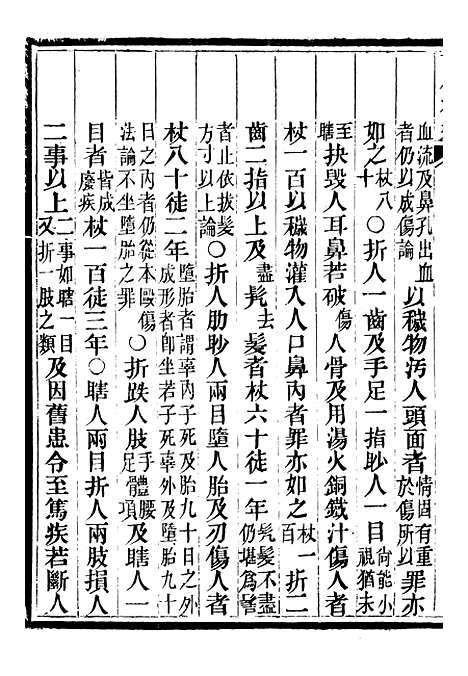 血流及鼻孔出血者仍以成傷論以穢物污人頭面者情固有重於傷所以罪亦
如之杖八十○折人一齒及手足一指眇人一目尚能小視猶未
至瞎抉毀人耳鼻若破傷人骨及用湯火銅鐵汁傷人者
杖一百以穢物灌入人口鼻內者罪亦如之杖一百折二
齒二指以上及盡髡去髮者杖六十徒一年髡髮不盡仍堪為髻
者止依拔髮方寸以上論○折人肋眇人兩目墮人胎及刃傷人者
杖八十徒二年墮胎者謂辜內子死九十日之外成形者即坐若子死辜外及墮胎九十
日之內者仍從本毆傷法論不坐墮胎之罪○折跌人肢手足體腰項及瞎人一
目者皆成廢疾杖一百徒三年○瞎人兩目折人兩肢損人
二事以上二事如瞎一目又折一肢之類及因舊患令至篤疾若斷人